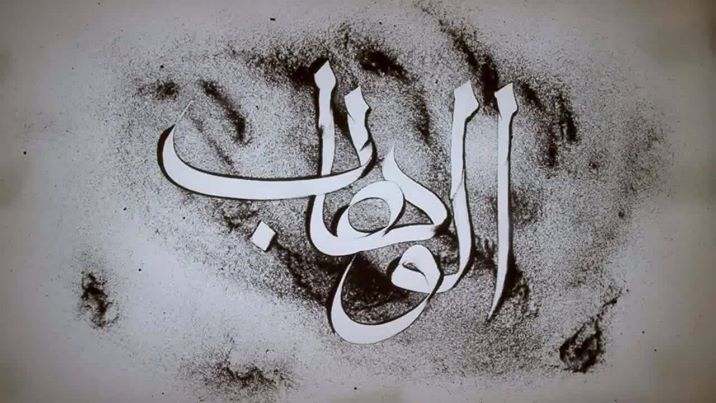 الوهاب